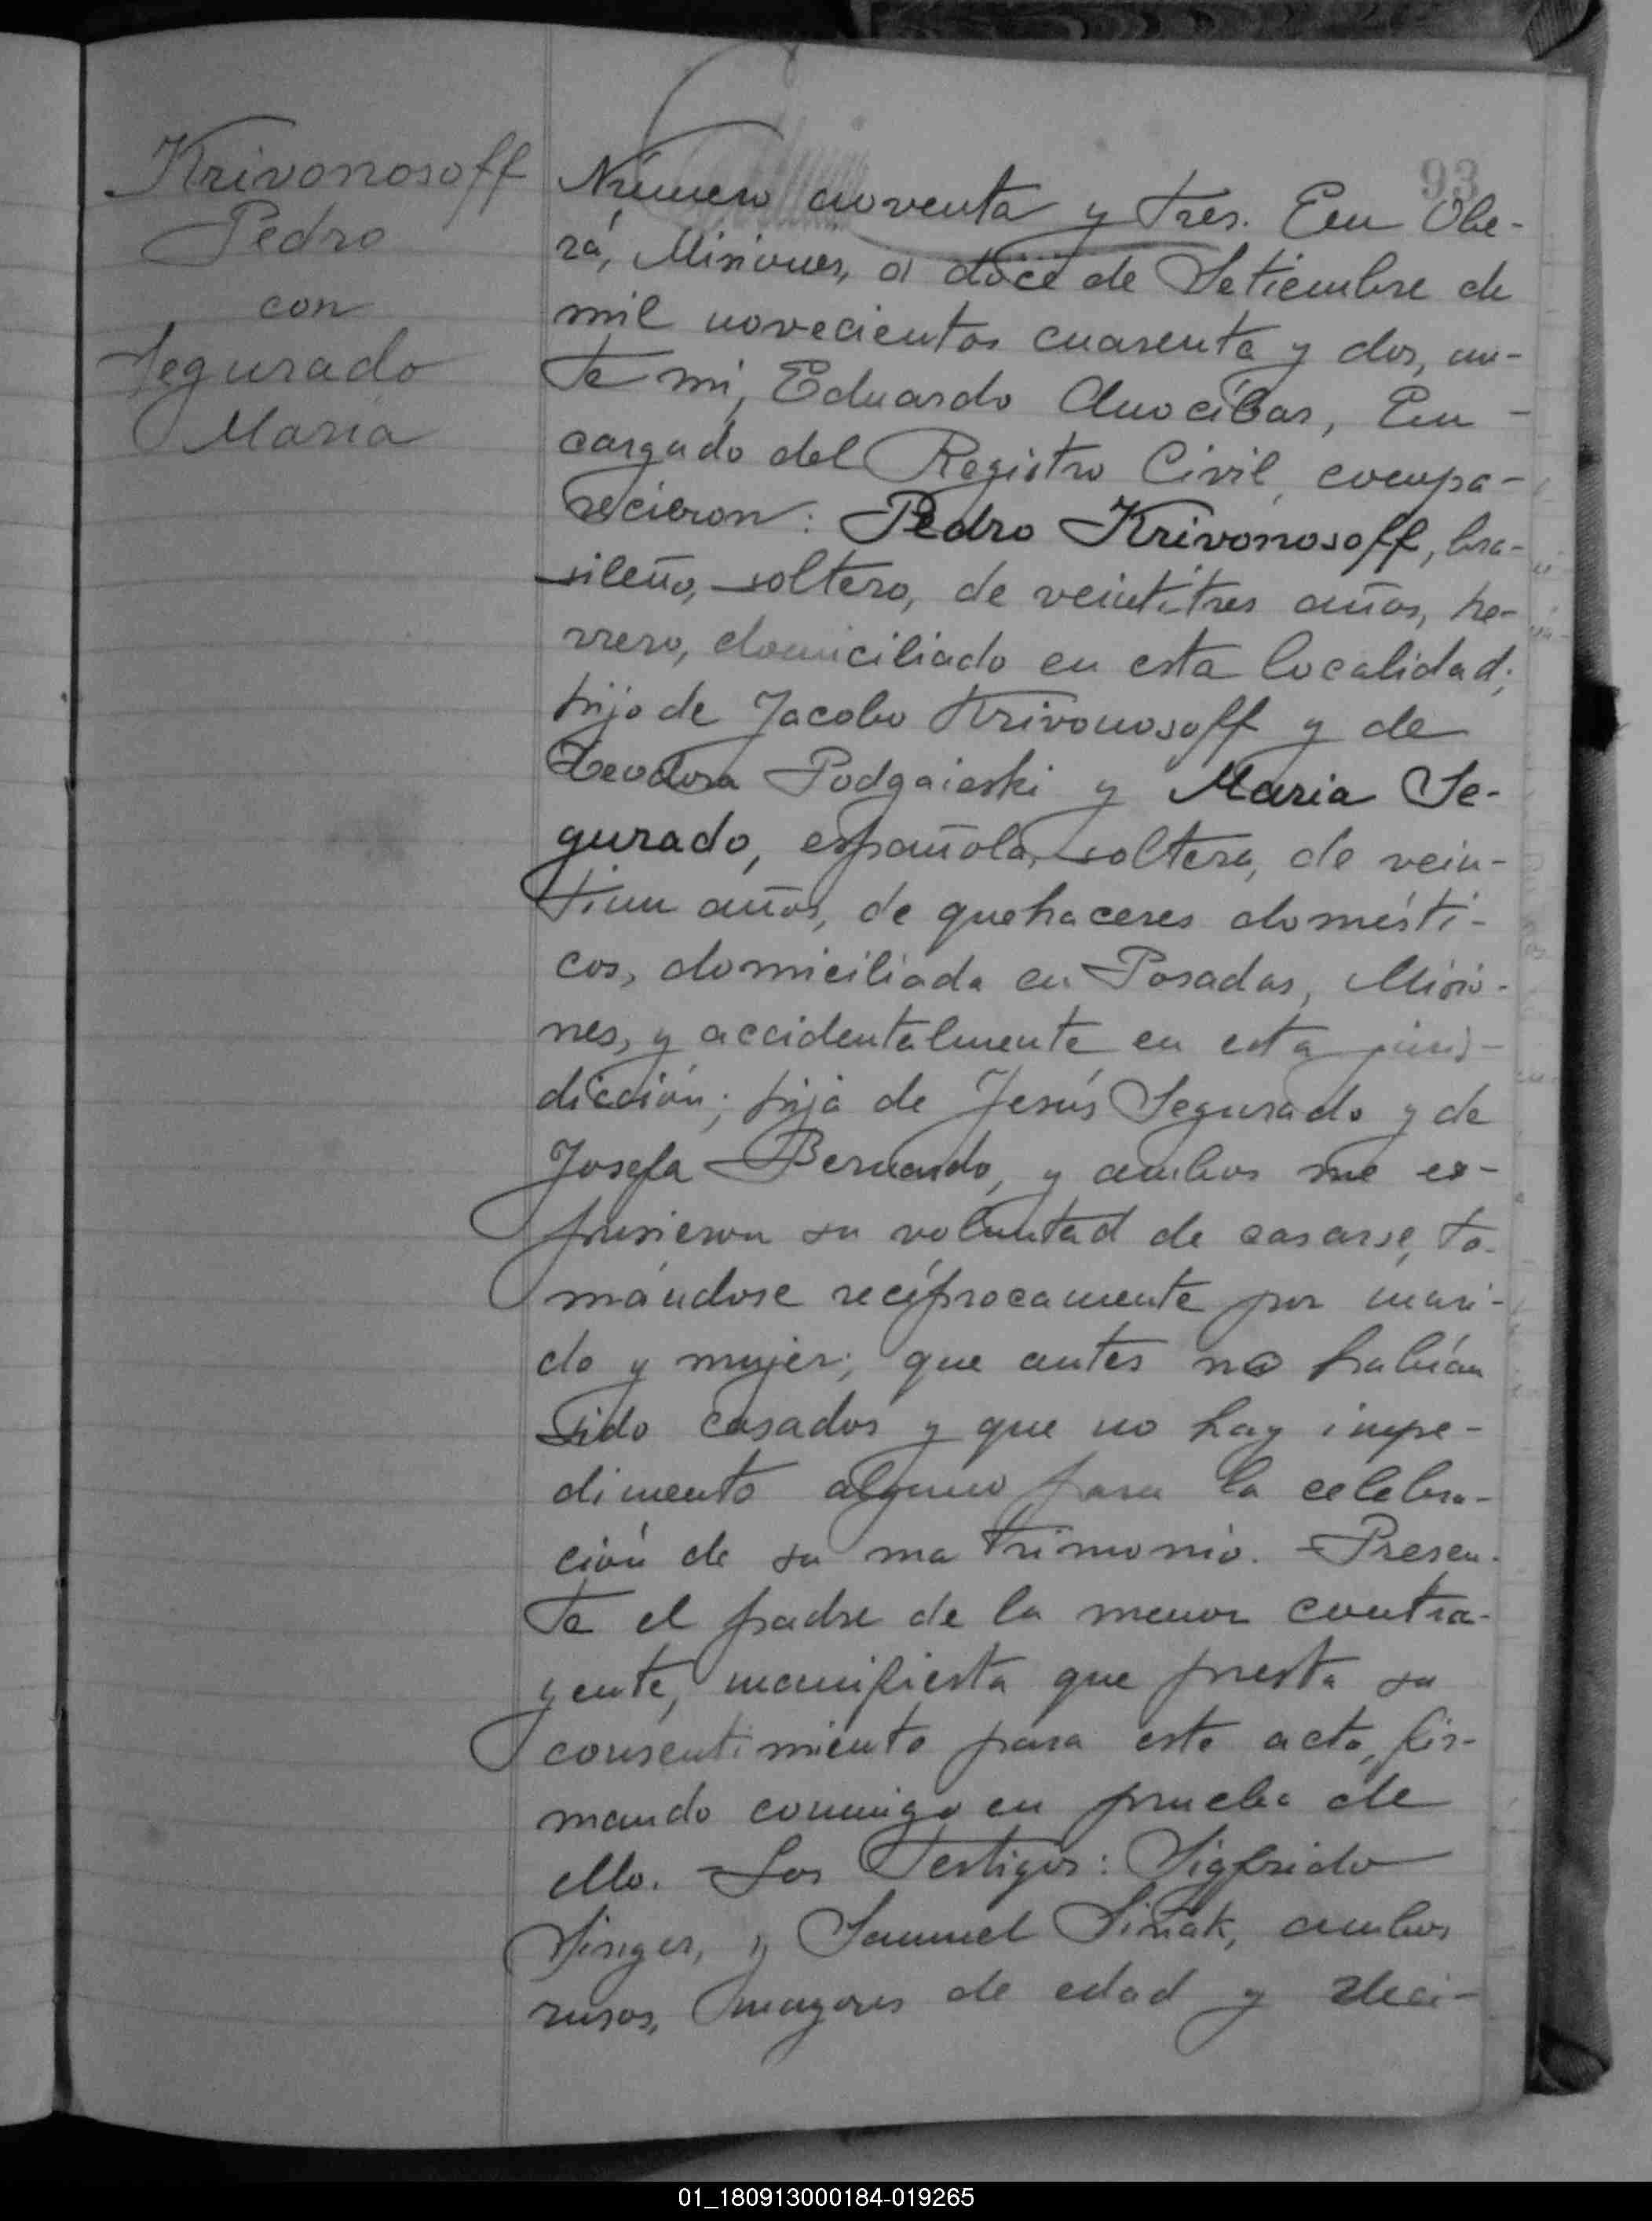 93
Krivonosoff
Pedro
con
Segurado
María
Número noventa y tres. En Obe-
rá, Misiones, a doce de Setiembre de
mil novecientos cuarenta y dos, an-
te mí, Eduardo Anocíbar, En-
cargado del Registro Civil, compa-
recieron: Pedro Krivonosoff, bra-
sileño, soltero, de veintitres años, he-
rrero, domiciliado en esta localidad;
hijo de Jacobo Krivonosoff y de
Teodora Podgaieski y Maria Se-
gurado, española, soltera, de vein-
tiun años, de quehaceres domésti-
cos, domiciliada en Posadas, Misio-
nes, y accidentalmente en esta juris-
dicción; hija de Jesús Segurado y de
Josefa Bernardo, y ambos me ex-
pusieron su voluntad de casarse, to-
mándose recíprocamente por mari-
do y mujer; que antes no habían
sido casados y que no hay impe-
dimento alguno para la celebra-
ción de su matrimonio. Presen-
te el padre de la menor contra-
yente, manifiesta que presta su
consentimiento para este acto, fir-
mando conmigo en prueba de
ello. Los Testigos: Sigfrido
Singer, y Samuel Siñak, ambos
rusos, mayores de edad y veci-
01_180913000184-019265